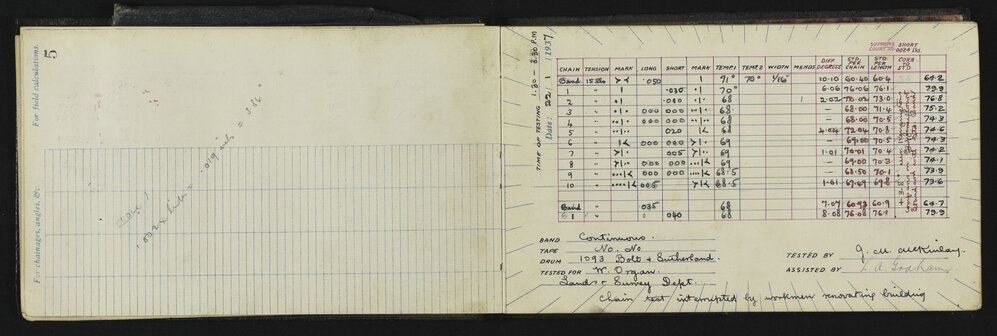 5
For field calculations.
For chainages, angles, &c.
TIME OF TESTING 1.30 - 3.30 P.M
Date: 22/1/1937
SUPREME COURT SHORT .0024 lks.
CHAIN TENSION MARK LONG SHORT MARK TEMP.1 TEMP.2 WIDTH MENDS DIFF DEGREES STD. PER CHAIN STD. PER LENGTH CORR TO STD.
Band .050 1 71° 70° 1/16" 10.10 60.40 60.4 64.2
1 " .030 .1 70° 6.06 76.06 76.1 79.9
2 " .1 .010 .1 68 1 2.02 70.02 73.0 76.8
3 " 000 000 68 — 68.00 71.4 75.2
4 " 000 000 68 — 68.00 70.5 74.3
5 " 020 68 4.04 72.04 70.8 74.6
6 " 000 000 69 — 69.00 70.5 74.3
7 " 005 69 1.01 70.01 70.4 74.2
8 " 000 000 69 — 69.00 70.3 74.1
9 " 000 000 68.5 — 68.50 70.1 73.9
10 " 005 68.5 1.01 67.69 69.8 73.6
Band " 035 68 7.07 60.93 60.9 64.7
1 " 040 68 8.08 76.08 76.1 79.9
BAND Continuous.
TAPE No. No
DRUM 1093 Bolt & Sutherland.
TESTED FOR W. Organ.
Lands & Survey Dept.
TESTED BY G. M. McKinlay.
ASSISTED BY L. A. Graham
Chain test interrupted by workmen renovating building